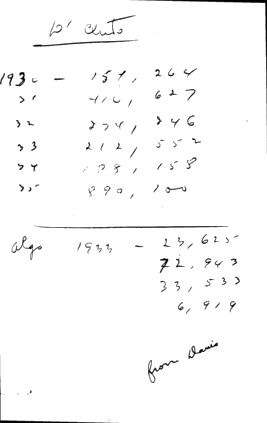 1930 - 157, 264
31 416, 627
32 274, 846
33 212, 552
34 158
35 890, 100
Algo 1933 - 23, 625
72, 943
33, 533
6, 919
from Davis